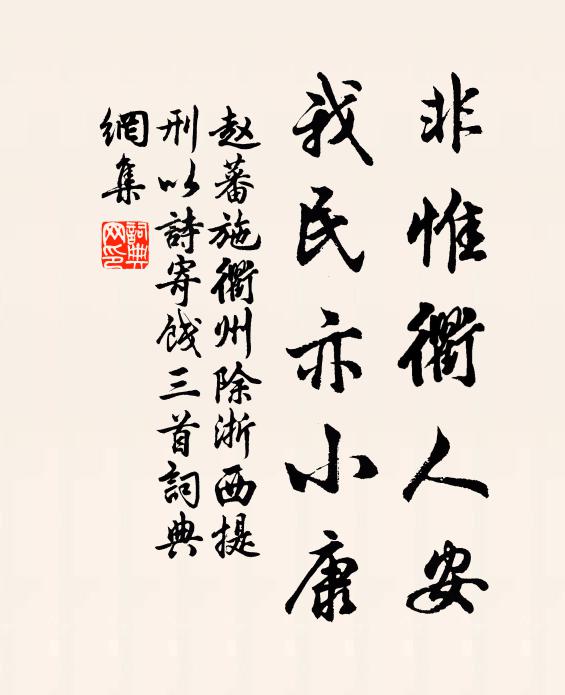 非惟衢人安
我民亦小康
赵蕃施衢州除浙西提
刑以詩寄餞三首詞典
網集
詞典
网印